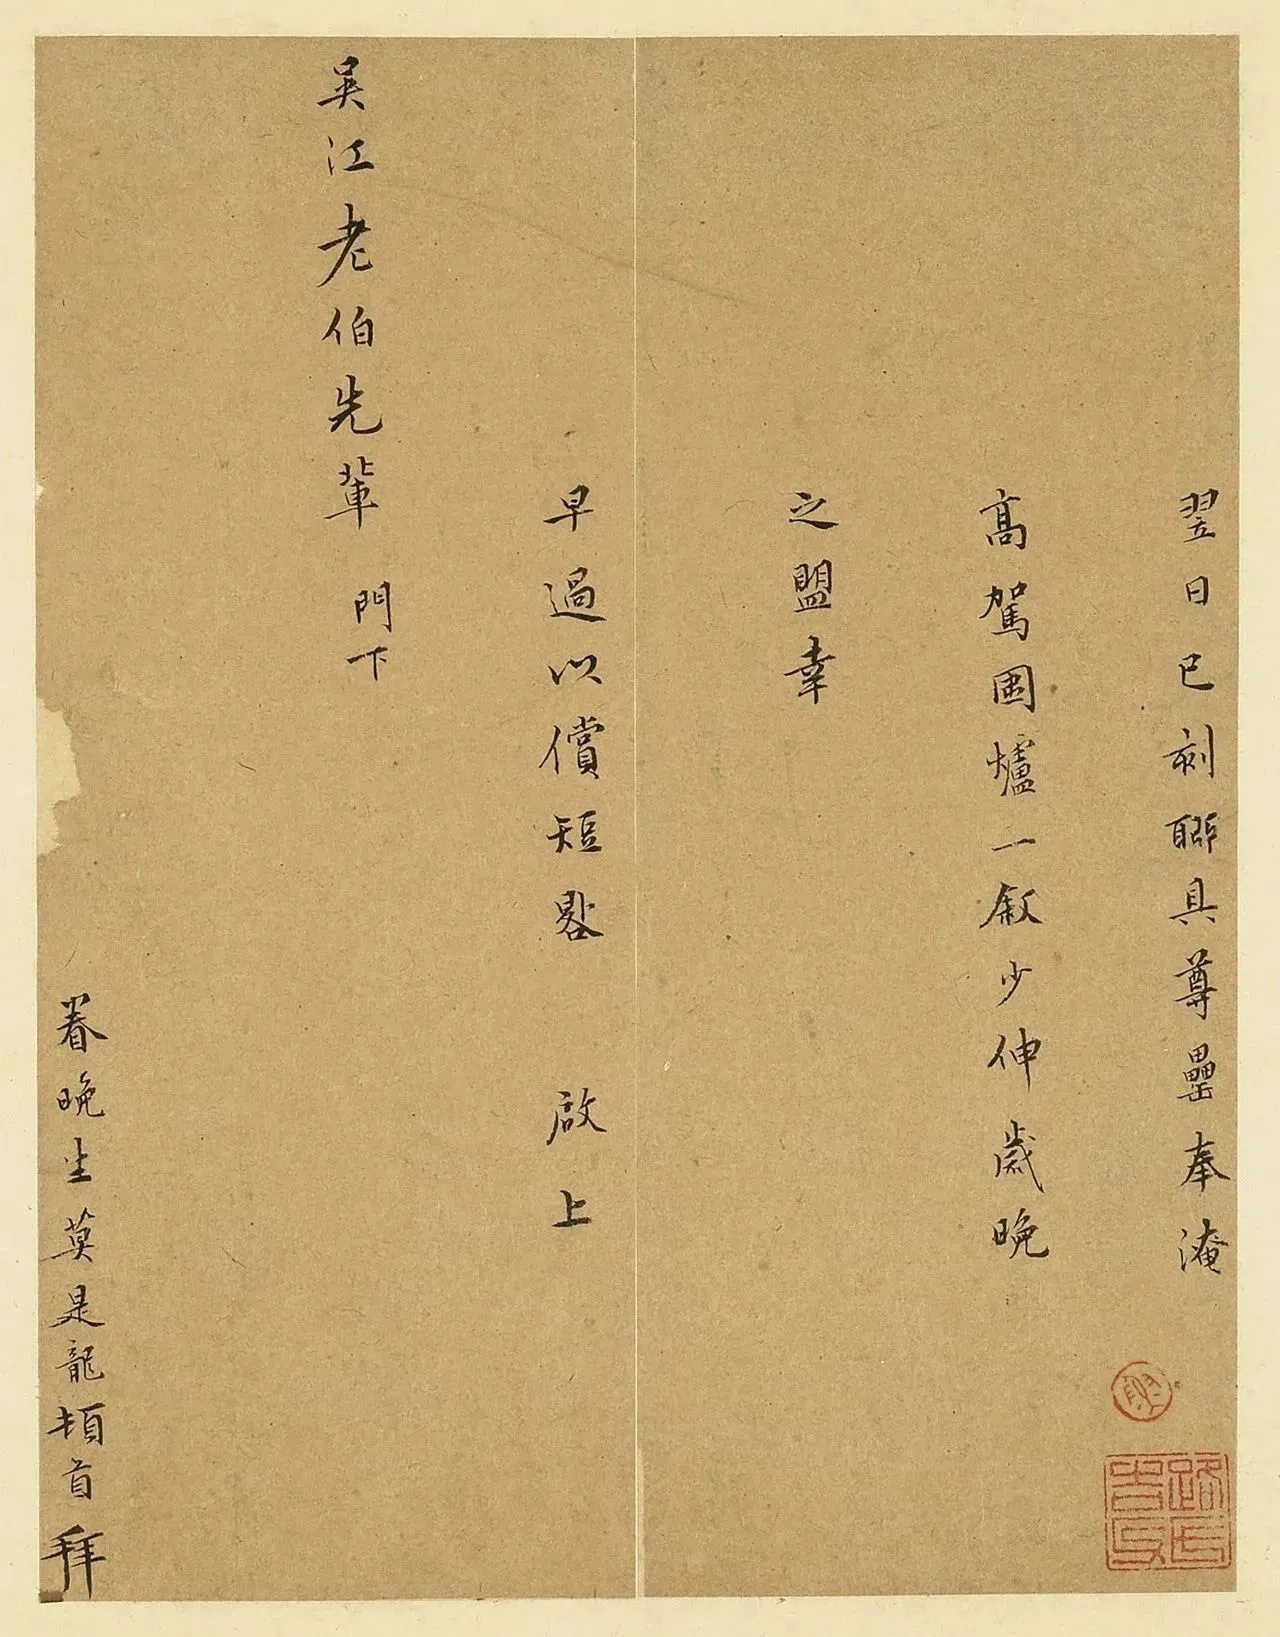 翌日已刻聊具尊罍奉淹
高駕圍爐一敘少伸歲晚
之盟幸
早過以償短晷　啟上
吳江老伯先輩　門下
眷晚生莫是龍頓首拜